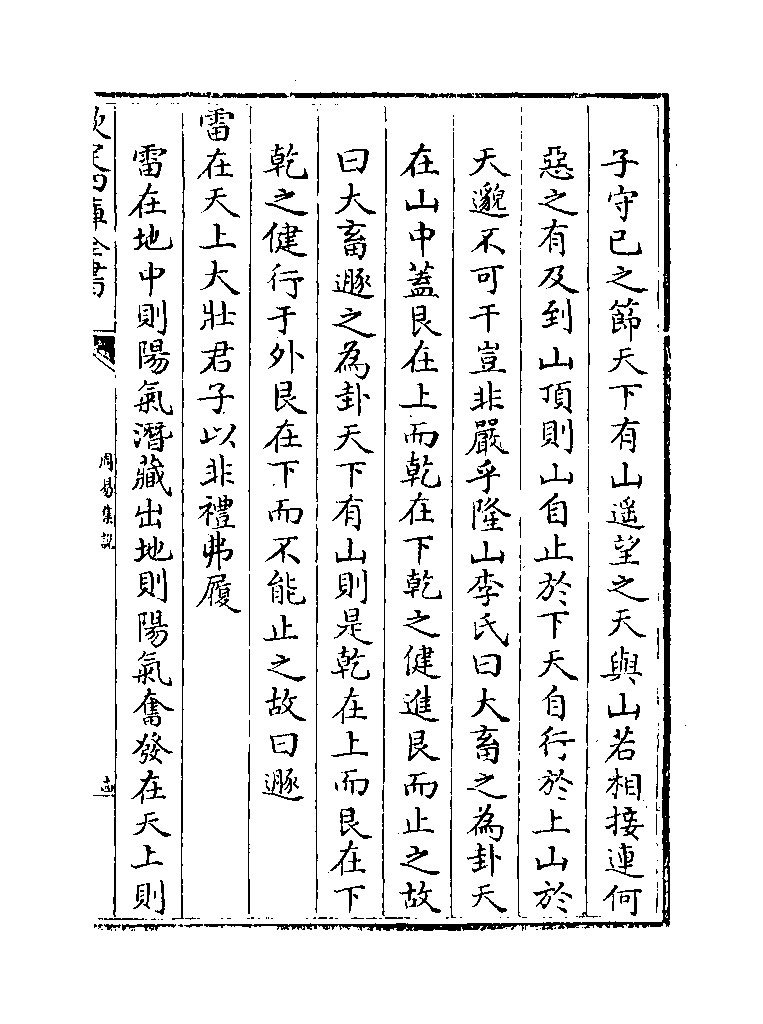 子守已之節天下有山遥望之天與山若相接連何
惡之有及到山頂則山自止於下天自行於上山於
天邈不可干豈非嚴乎隆山李氏曰大畜之為卦天
在山中蓋艮在上而乾在下乾之健進艮而止之故
曰大畜遯之為卦天下有山則是乾在上而艮在下
乾之健行于外艮在下而不能止之故曰遯
雷在天上大壯君子以非禮弗履
雷在地中則陽氣潛藏出地則陽氣奮發在天上則
欽定四庫全書
周易集説